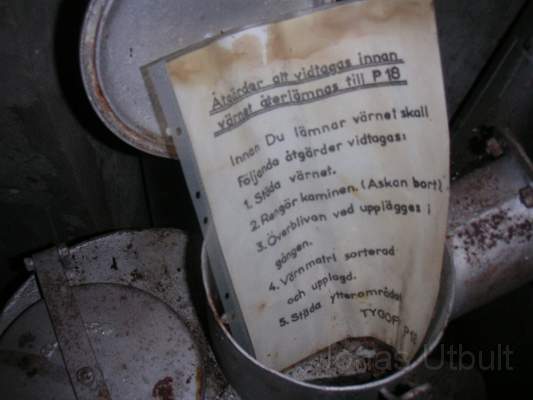 Åtgärder att vidtagas innan
värnet återlämnas till P 18
Innan Du lämnar värnet skall
Följande åtgärder vidtagas:
1. Städa värnet.
2. Rengör kaminen. (Askan bort)
3. Överbliven ved upplägges i
gången.
4. Värnmatri sorterad
och upplagd.
5. Städa ytterområdet
TYGOFF P18
Jonas Utbult